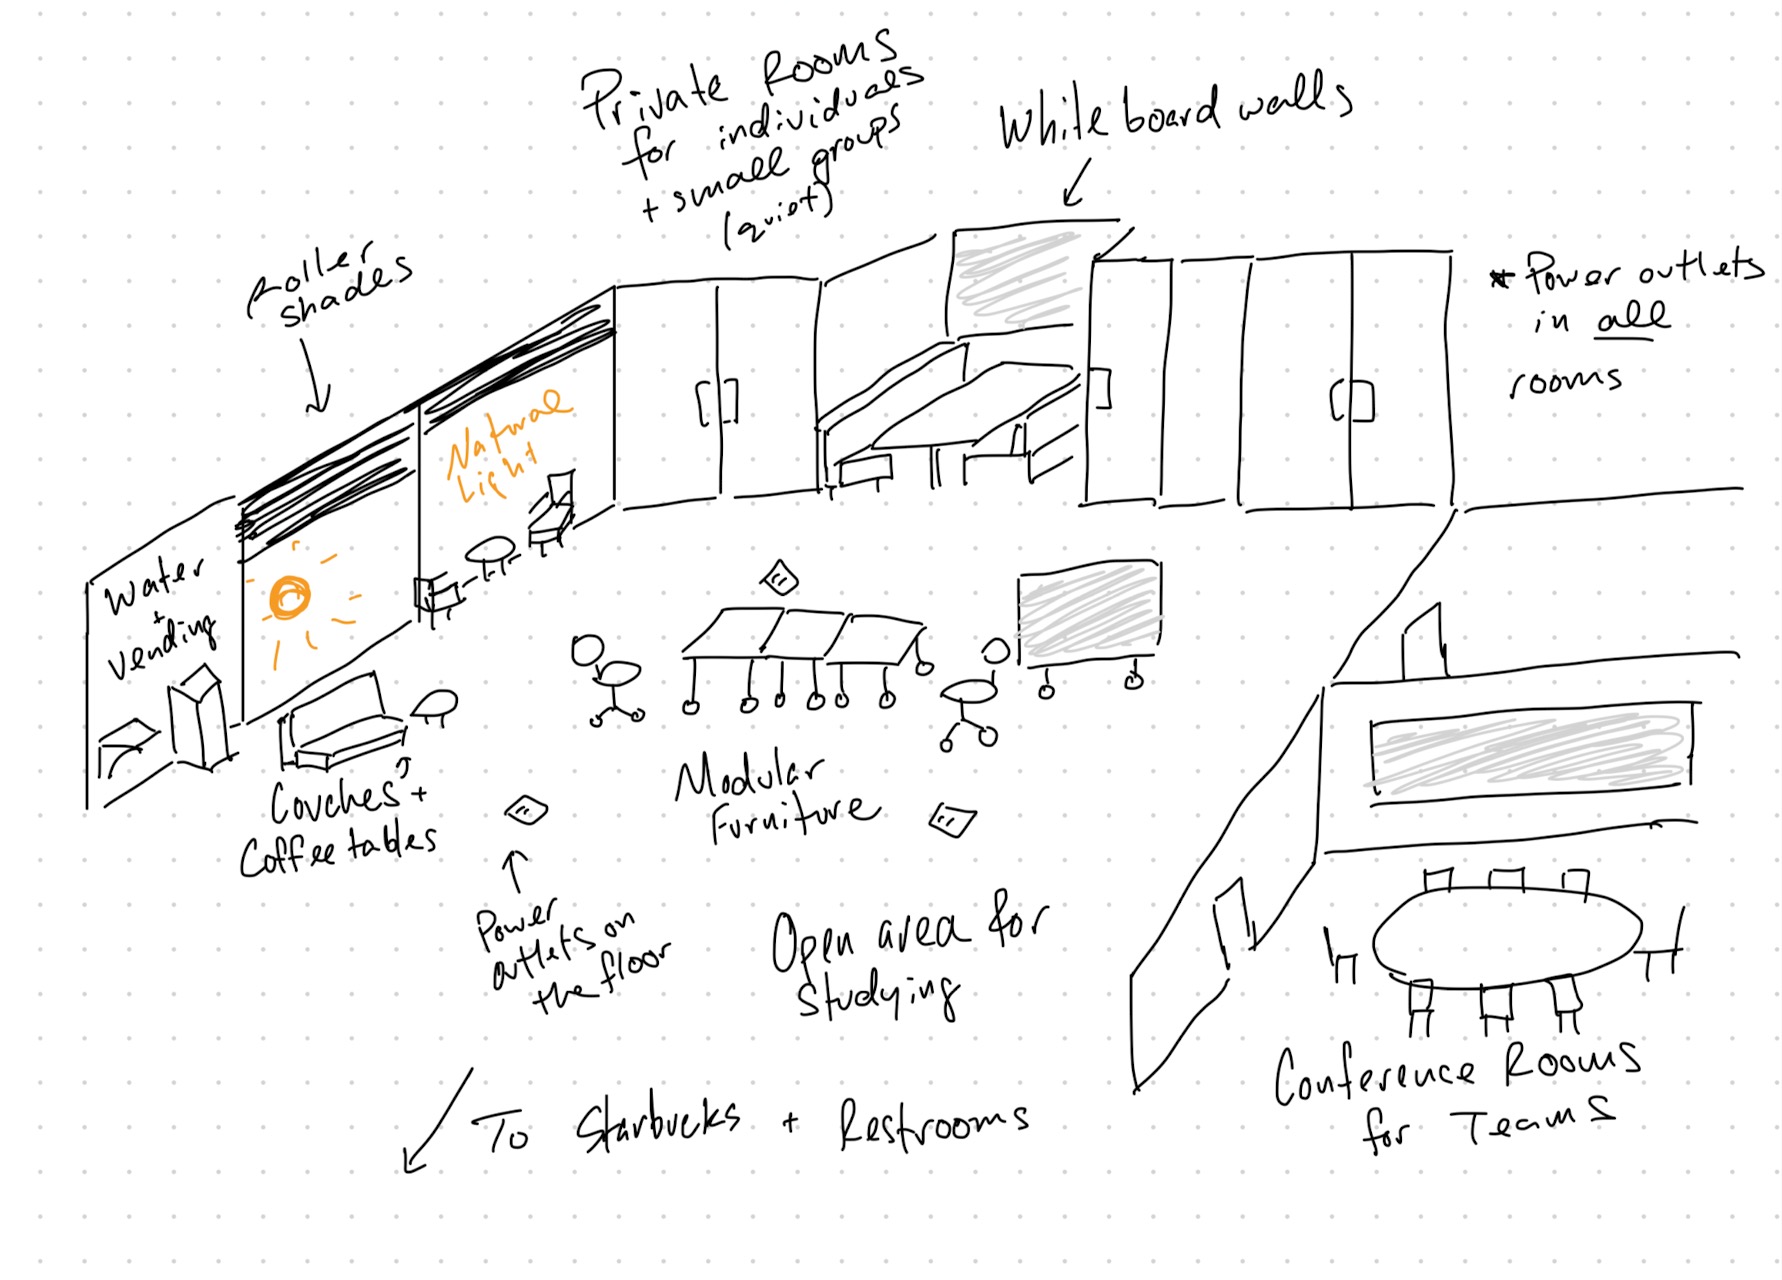 Private Rooms
for individuals
+ small groups
(quiet)
White board walls
roller
shades
* Power outlets
in all
rooms
Natural
Light
Water
+
vending
Couches +
Coffee tables
Modular
Furniture
Power
outlets on
the floor
Open area for
studying
To Starbucks + Restrooms
Conference Rooms
for Teams